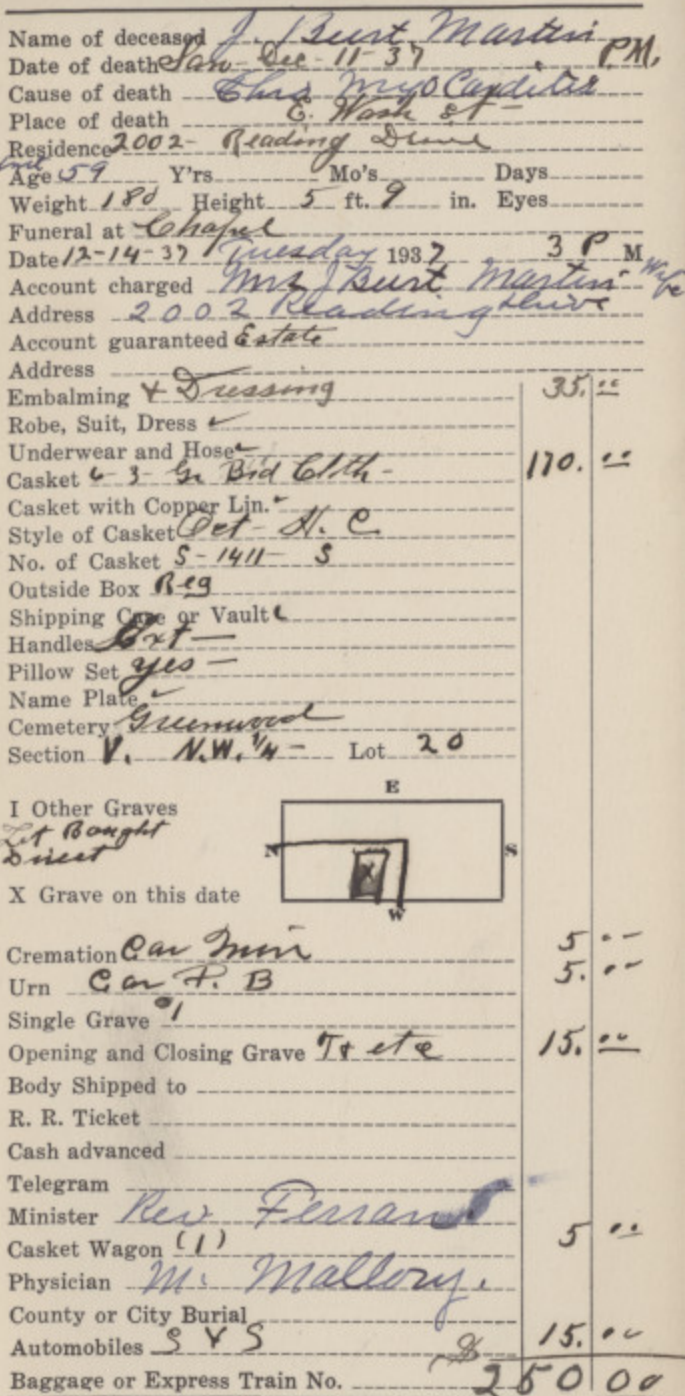 Name of deceased J. Burt Martin
Date of death Dec-11-37 P.M.
Cause of death Myo Carditis
Place of death E. Wash st-
Residence 2002- Reading Drive
Age 59 Y'rs Mo's Days
Weight 180 Height 5 ft. 9 in. Eyes
Funeral at Chapel
Date 12-14-37 Tuesday 1937 3 P M
Account charged Mrs J Burt Martin Wife
Address 2002 Reading Drive
Account guaranteed Estate
Address
Embalming & Dressing 35.00
Robe, Suit, Dress ✓
Underwear and Hose ✓
Casket 6-3 Cloth- 170.00
Casket with Copper Lin. ✓
Style of Casket Oct-
No. of Casket S-1411- S
Outside Box Reg
Shipping Case or Vault ✓
Handles Ext-
Pillow Set yes-
Name Plate ✓
Cemetery Greenwood
Section V. N.W. 1/4- Lot 20
E
I Other Graves
Lot Bought
Direct
N S
X
X Grave on this date
W
Cremation Car Min 5.00
Urn Car P. B 5.00
Single Grave #1
Opening and Closing Grave 15.00
Body Shipped to
R. R. Ticket
Cash advanced
Telegram
Minister Rev
Casket Wagon (1) 5 00
Physician Mallory.
County or City Burial
Automobiles S & S 15.00
Baggage or Express Train No. $ 250 00